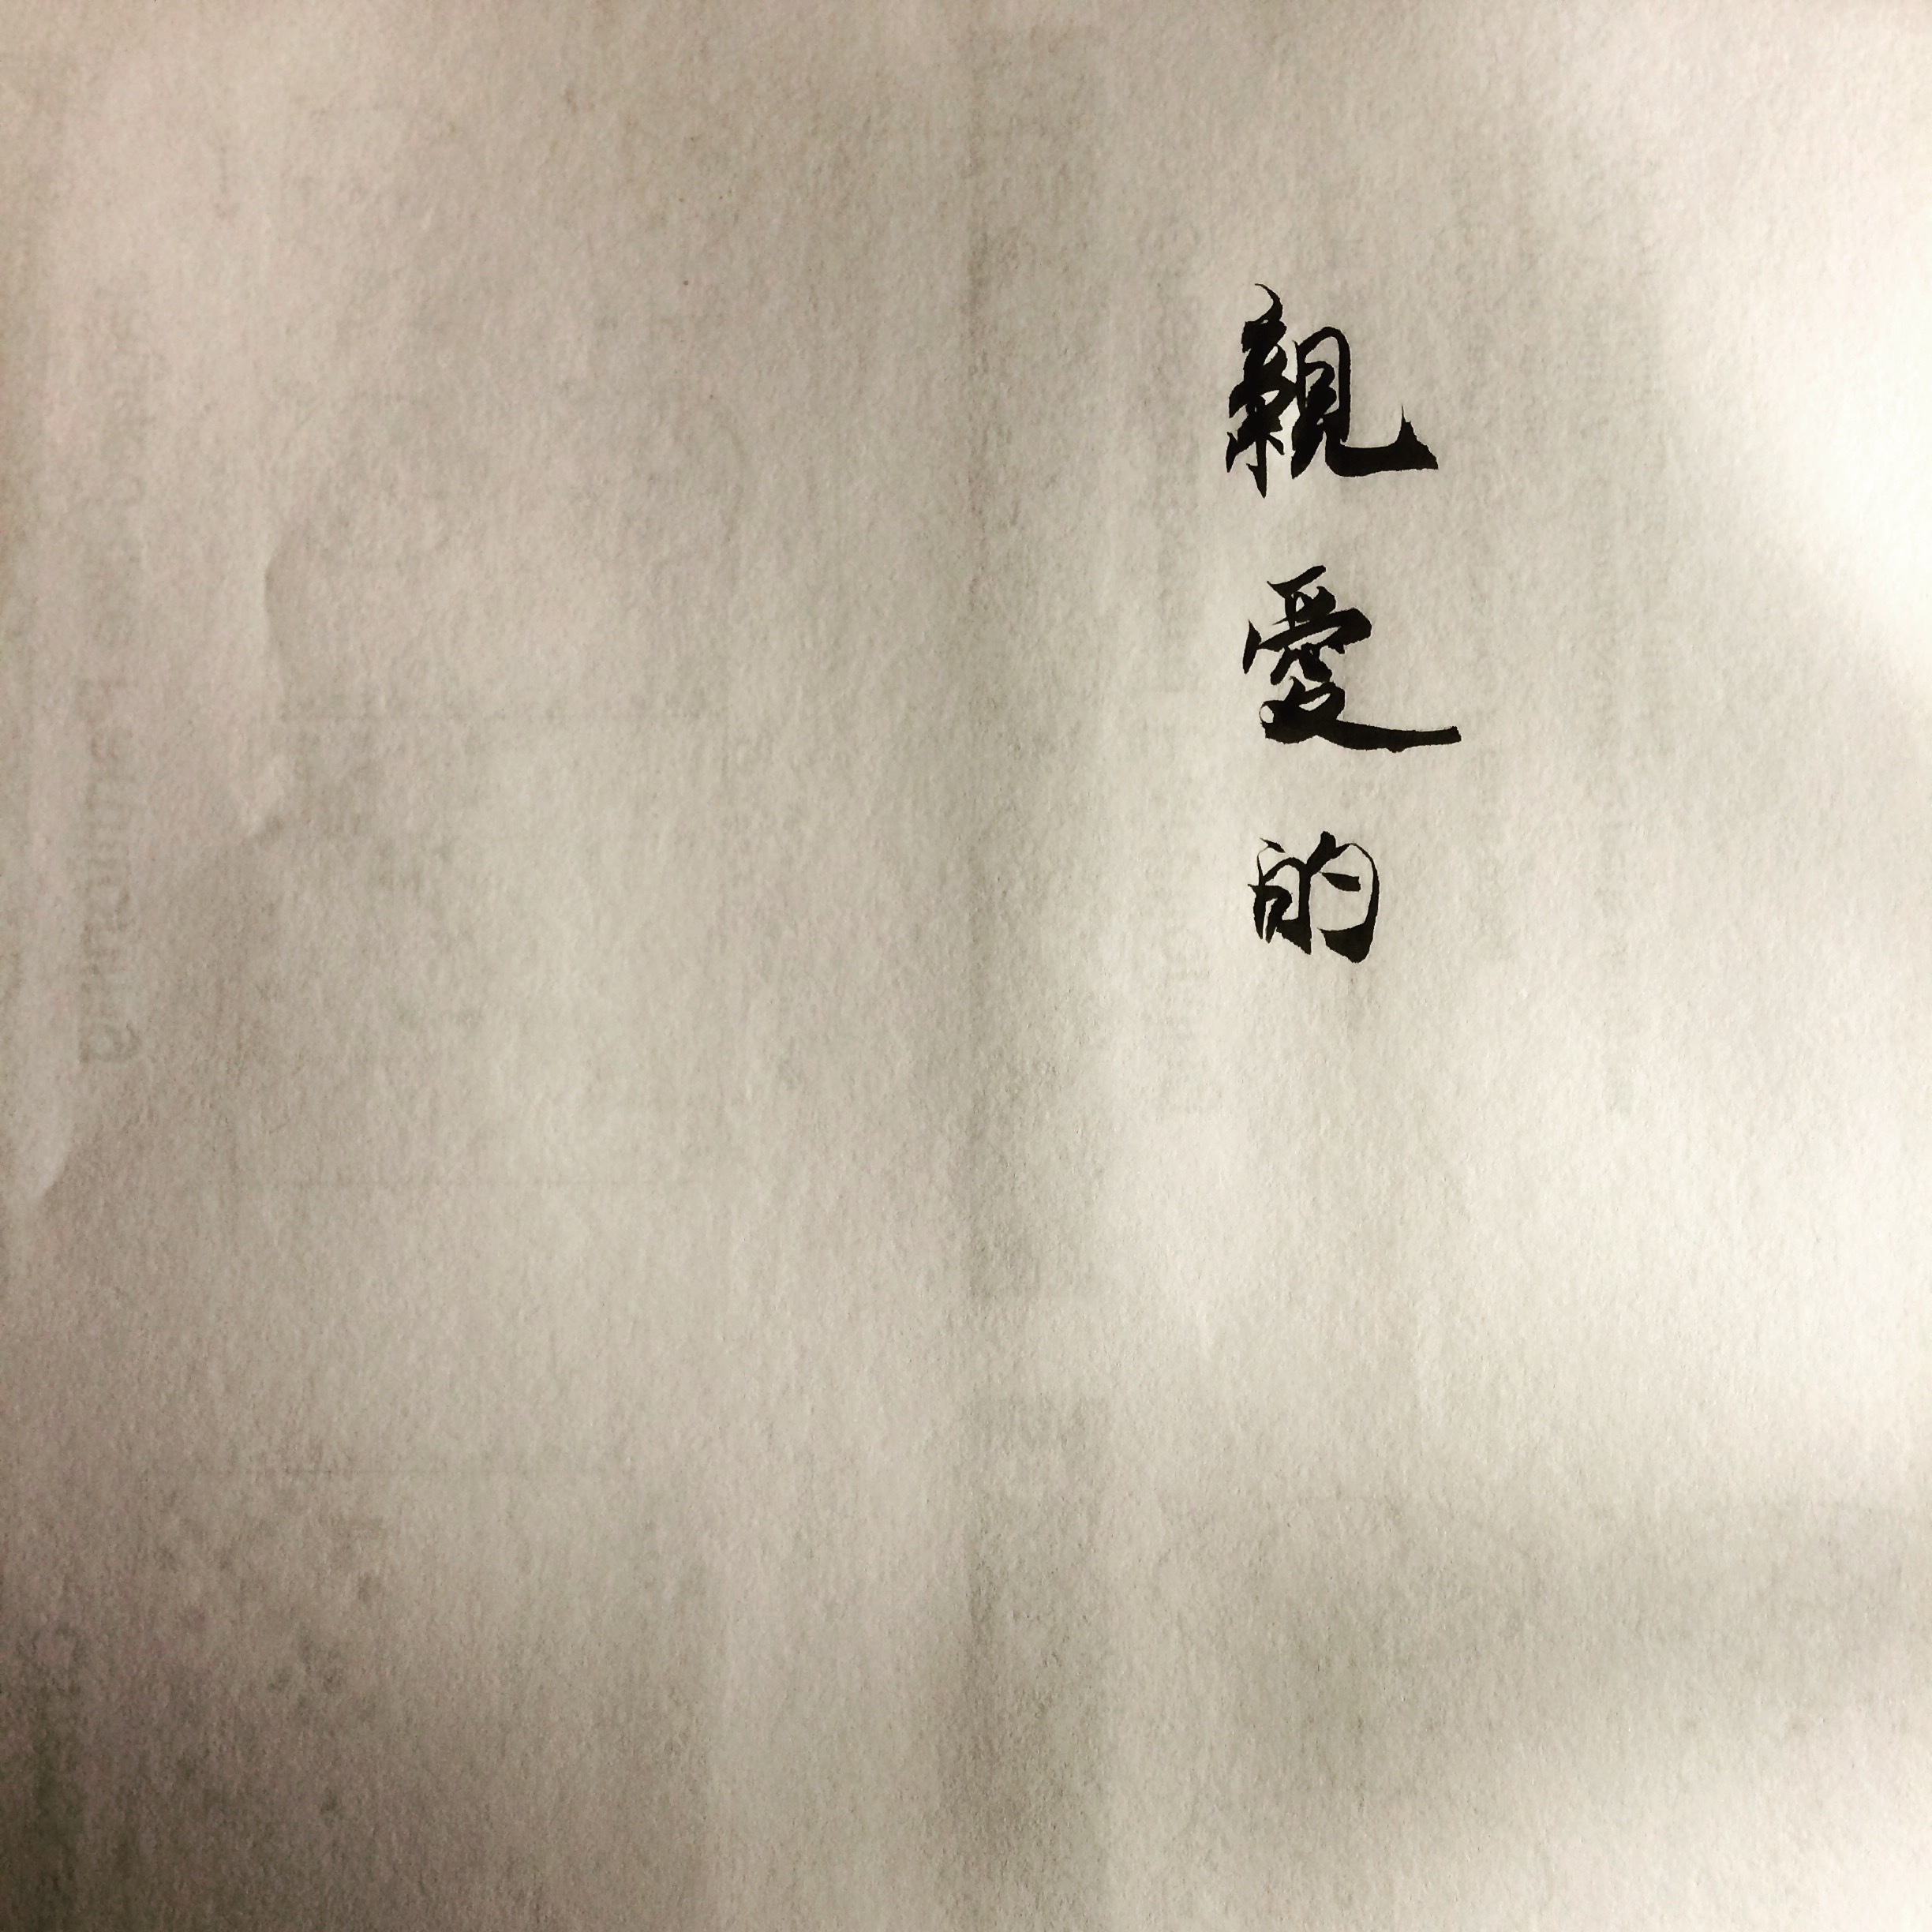 親愛的